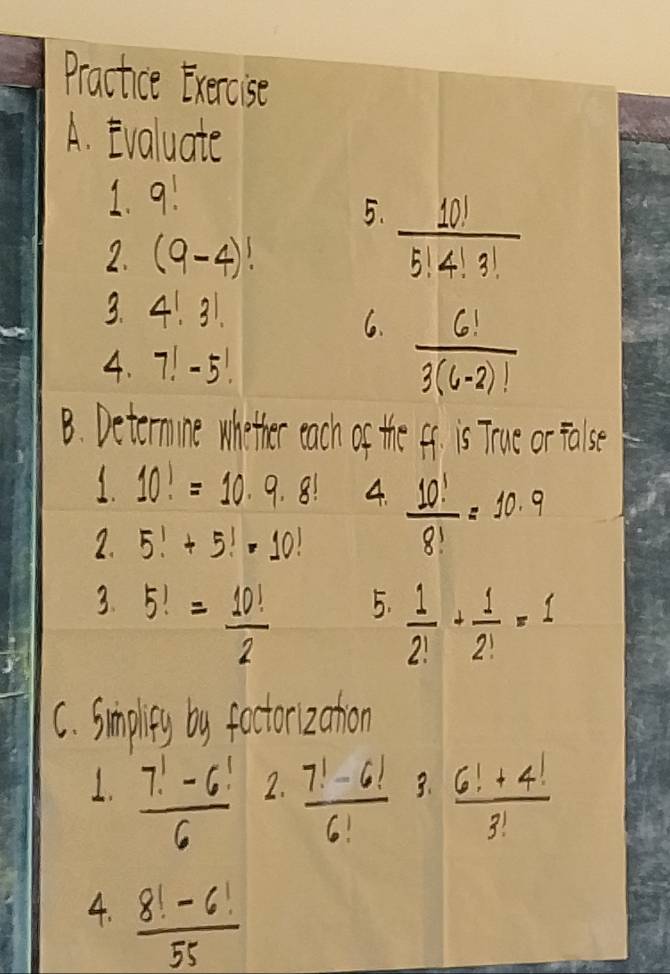 Practice Exercise
A. Evaluate
1. 9!
2. (9-4)!
3. 4! 3!
4. 7! - 5!
5. 10! / 5! 4! 3!
6. 6! / 3(6-2)!
B. Determine whether each of the ff. is True or False
1. 10! = 10. 9. 8!
2. 5! + 5! = 10!
3. 5! = 10! / 2
4. 10! / 8! = 10.9
5. 1 / 2! + 1 / 2! = 1
C. Simplify by factorization
1. 7! - 6! / 6
2. 7! - 6! / 6!
3. 6! + 4! / 3!
4. 8! - 6! / 55